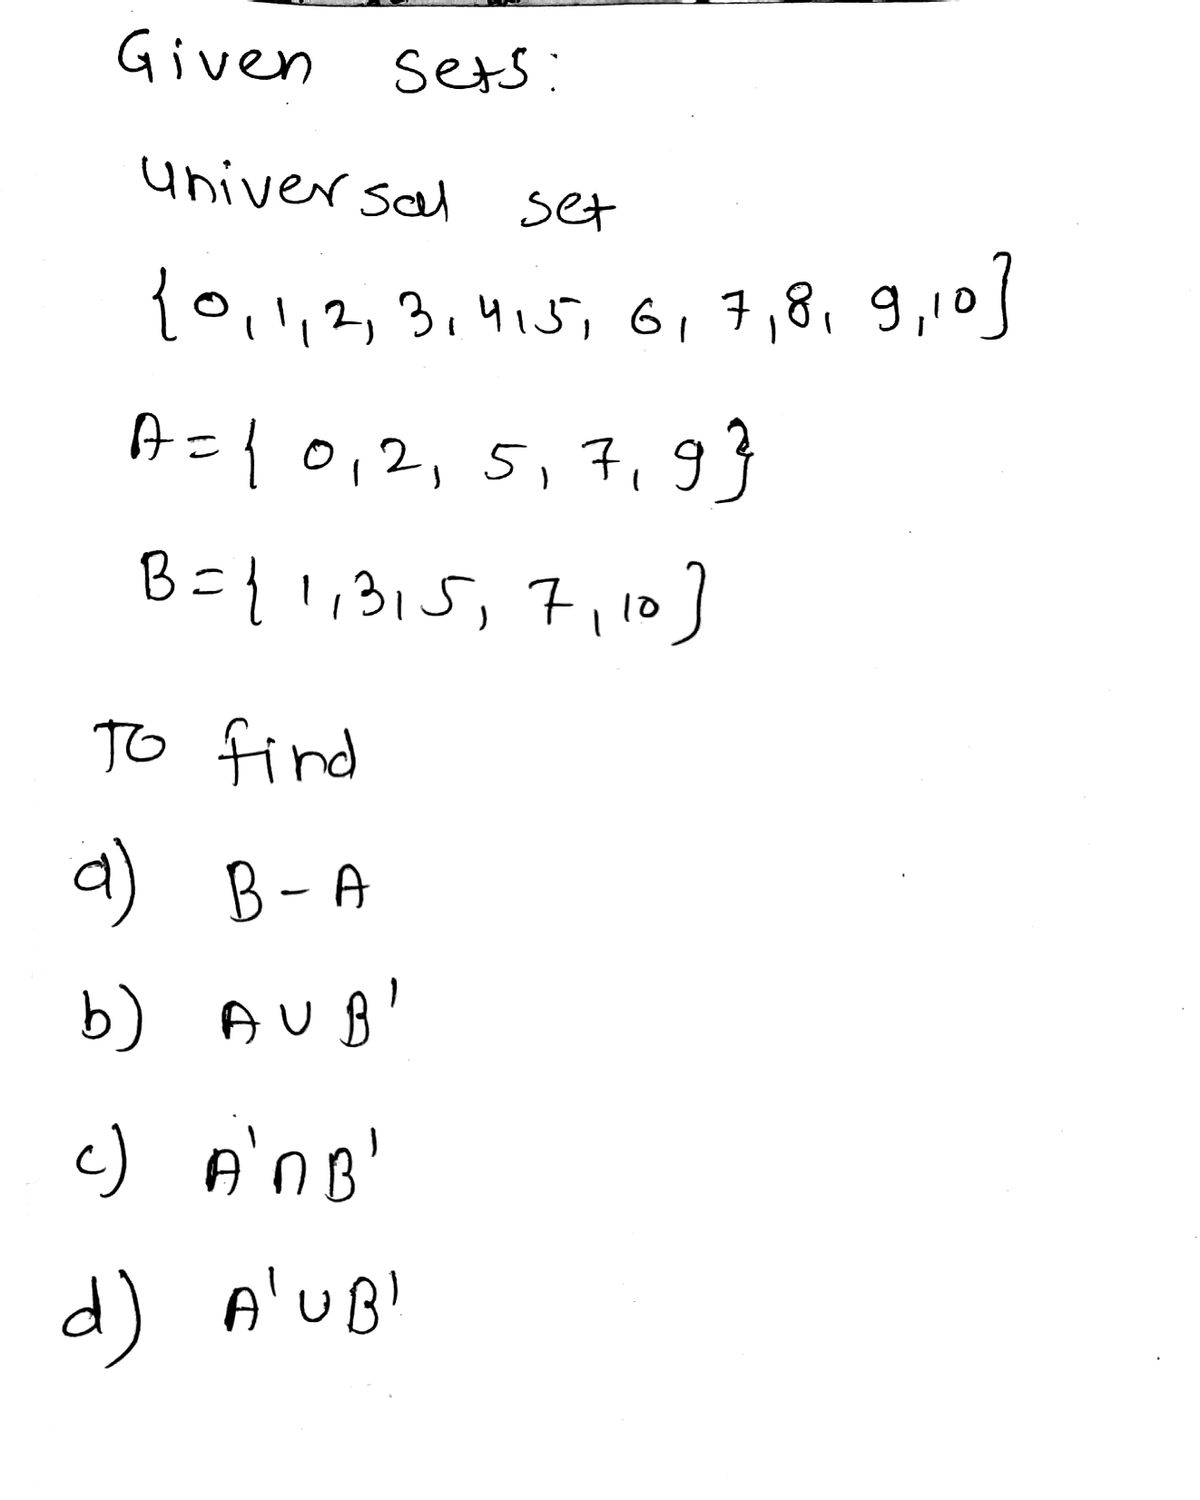 Given sets:
universal set
{0,1,2,3,4,5,6,7,8,9,10}
A={0,2,5,7,9}
B={1,3,5,7,10}
To find
a) B-A
b) A∪B'
c) A'∩B'
d) A'∪B'